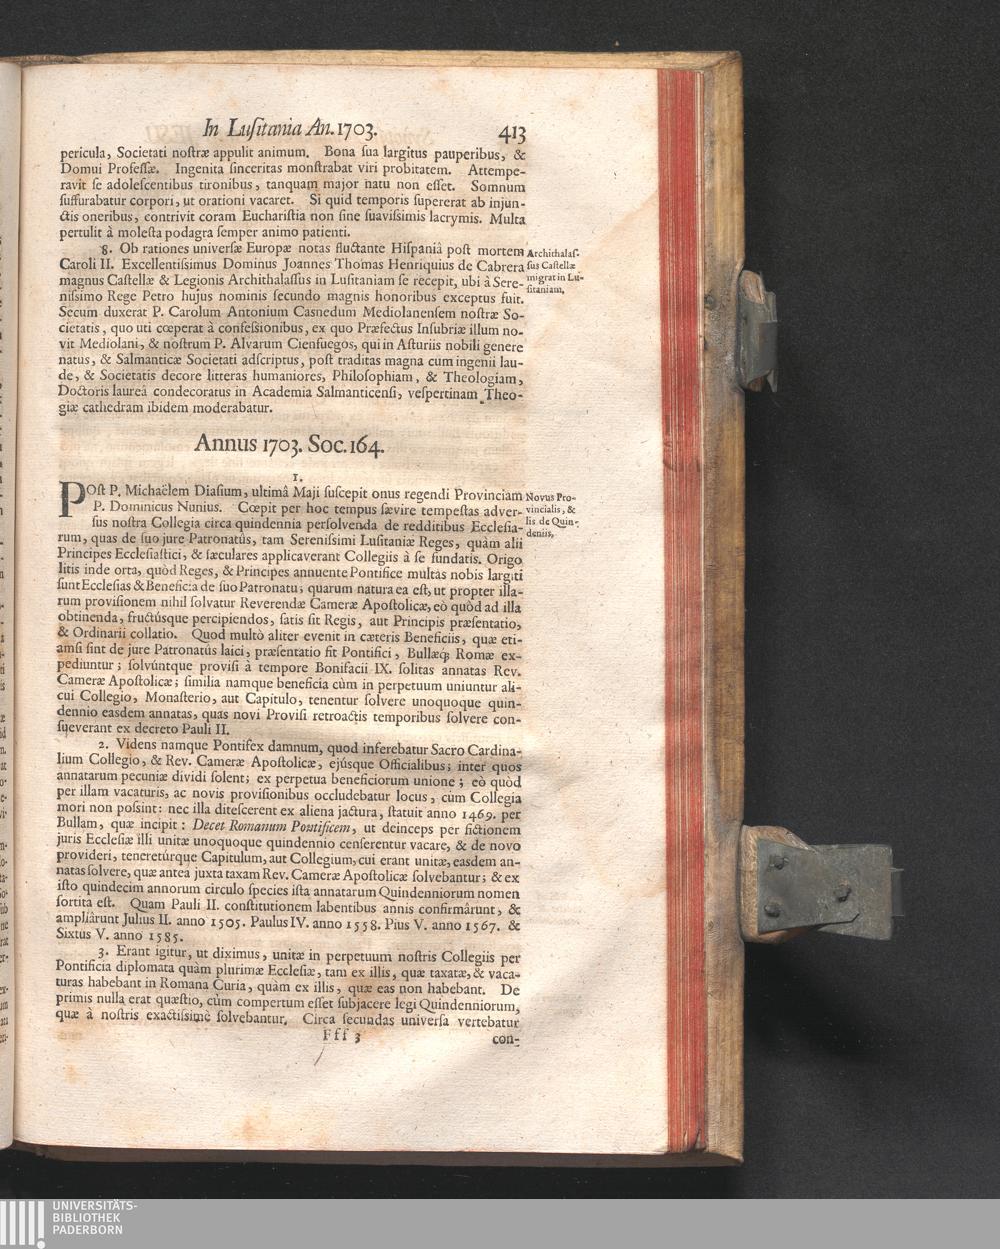 In Luſitania An. 1703. 413
pericula, Societati noſtræ appulit animum. Bona ſua largitus pauperibus, &
Domui Profeſſæ. Ingenita ſinceritas monſtrabat viri probitatem. Attempe-
ravit ſe adoleſcentibus tironibus, tanquam major natu non eſſet. Somnum
ſuffurabatur corpori, ut orationi vacaret. Si quid temporis ſupererat ab injun-
ctis oneribus, contrivit coram Euchariſtia non ſine ſuaviſſimis lacrymis. Multa
pertulit à moleſta podagra ſemper animo patienti.
8. Ob rationes univerſæ Europæ notas fluctante Hiſpaniâ poſt mortem
Caroli II. Excellentiſſimus Dominus Joannes Thomas Henriquius de Cabrera
magnus Caſtellæ & Legionis Archithalaſſus in Luſitaniam ſe recepit, ubi à Sere-
niſſimo Rege Petro hujus nominis ſecundo magnis honoribus exceptus fuit.
Secum duxerat P. Carolum Antonium Casnedum Mediolanenſem noſtræ So-
cietatis, quo uti cœperat à confeſſionibus, ex quo Præfectus Inſubriæ illum no-
vit Mediolani, & noſtrum P. Alvarum Cienfuegos, qui in Aſturiis nobili genere
natus, & Salmanticæ Societati adſcriptus, poſt traditas magna cum ingenii lau-
de, & Societatis decore litteras humaniores, Philoſophiam, & Theologiam,
Doctoris laureâ condecoratus in Academia Salmanticenſi, veſpertinam Theo-
giæ cathedram ibidem moderabatur.
Archithalaſ-
ſus Caſtellæ
migrat in Lu-
ſitaniam.
Annus 1703. Soc. 164.
1.
POſt P. Michaëlem Diaſium, ultimâ Maji ſuſcepit onus regendi Provinciam
P. Dominicus Nunius. Cœpit per hoc tempus ſævire tempeſtas adver-
ſus noſtra Collegia circa quindennia perſolvenda de redditibus Eccleſia-
rum, quas de ſuo jure Patronatûs, tam Sereniſſimi Luſitaniæ Reges, quàm alii
Principes Eccleſiaſtici, & ſæculares applicaverant Collegiis à ſe fundatis. Origo
litis inde orta, quòd Reges, & Principes annuente Pontifice multas nobis largiti
ſunt Eccleſias & Beneficia de ſuo Patronatu; quarum natura ea eſt, ut propter illa-
rum proviſionem nihil ſolvatur Reverendæ Cameræ Apoſtolicæ, eò quòd ad illa
obtinenda, fructúsque percipiendos, ſatis ſit Regis, aut Principis præſentatio,
& Ordinarii collatio. Quod multò aliter evenit in cæteris Beneficiis, quæ eti-
amſi ſint de jure Patronatûs laici, præſentatio fit Pontifici, Bullæq; Romæ ex-
pediuntur; ſolvúntque proviſi à tempore Bonifacii IX. ſolitas annatas Rev.
Cameræ Apoſtolicæ; ſimilia namque beneficia cùm in perpetuum uniuntur ali-
cui Collegio, Monaſterio, aut Capitulo, tenentur ſolvere unoquoque quin-
dennio easdem annatas, quas novi Proviſi retroactis temporibus ſolvere con-
ſueverant ex decreto Pauli II.
Novus Pro-
vincialis, &
lis de Quin-
deniis.
2. Videns namque Pontifex damnum, quod inferebatur Sacro Cardina-
lium Collegio, & Rev. Cameræ Apoſtolicæ, ejúsque Officialibus; inter quos
annatarum pecuniæ dividi ſolent; ex perpetua beneficiorum unione; eò quòd
per illam vacaturis, ac novis proviſionibus occludebatur locus, cùm Collegia
mori non poſſint: nec illa diteſcerent ex aliena jactura, ſtatuit anno 1469. per
Bullam, quæ incipit: Decet Romanum Pontificem, ut deinceps per fictionem
juris Eccleſiæ illi unitæ unoquoque quindennio cenſerentur vacare, & de novo
provideri, teneretúrque Capitulum, aut Collegium, cui erant unitæ, easdem an-
natas ſolvere, quæ antea juxta taxam Rev. Cameræ Apoſtolicæ ſolvebantur; & ex
iſto quindecim annorum circulo ſpecies iſta annatarum Quindenniorum nomen
ſortita eſt. Quam Pauli II. conſtitutionem labentibus annis confirmârunt, &
ampliârunt Julius II. anno 1505. Paulus IV. anno 1558. Pius V. anno 1567. &
Sixtus V. anno 1585.
3. Erant igitur, ut diximus, unitæ in perpetuum noſtris Collegiis per
Pontificia diplomata quàm plurimæ Eccleſiæ, tam ex illis, quæ taxatæ, & vaca-
turas habebant in Romana Curia, quàm ex illis, quæ eas non habebant. De
primis nulla erat quæſtio, cùm compertum eſſet ſubjacere legi Quindenniorum,
quæ à noſtris exactiſſimè ſolvebantur. Circa ſecundas univerſa vertebatur
Fff 3 con-
UNIVERSITÄTS-
BIBLIOTHEK
PADERBORN